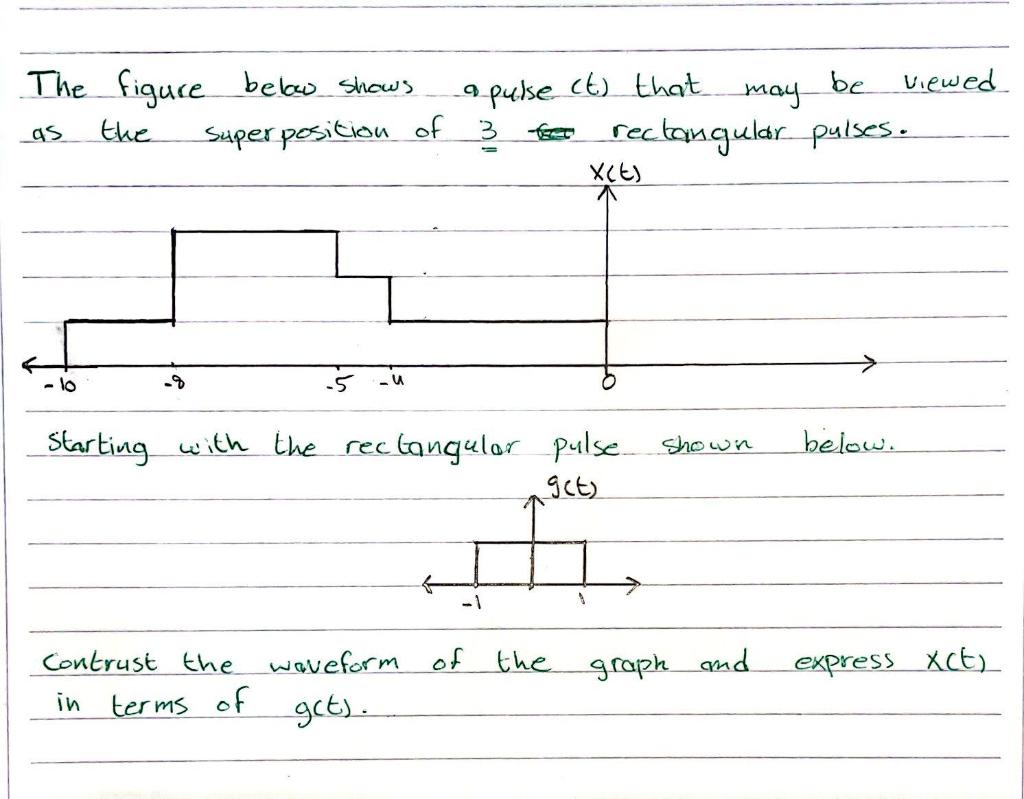 The figure below shows a pulse (t) that may be viewed
as the superposition of 3 rectangular pulses.
X(t)
-10 -8 -5 -4 0
Starting with the rectangular pulse shown below.
g(t)
-1 1
Contrust the waveform of the graph and express X(t)
in terms of g(t).